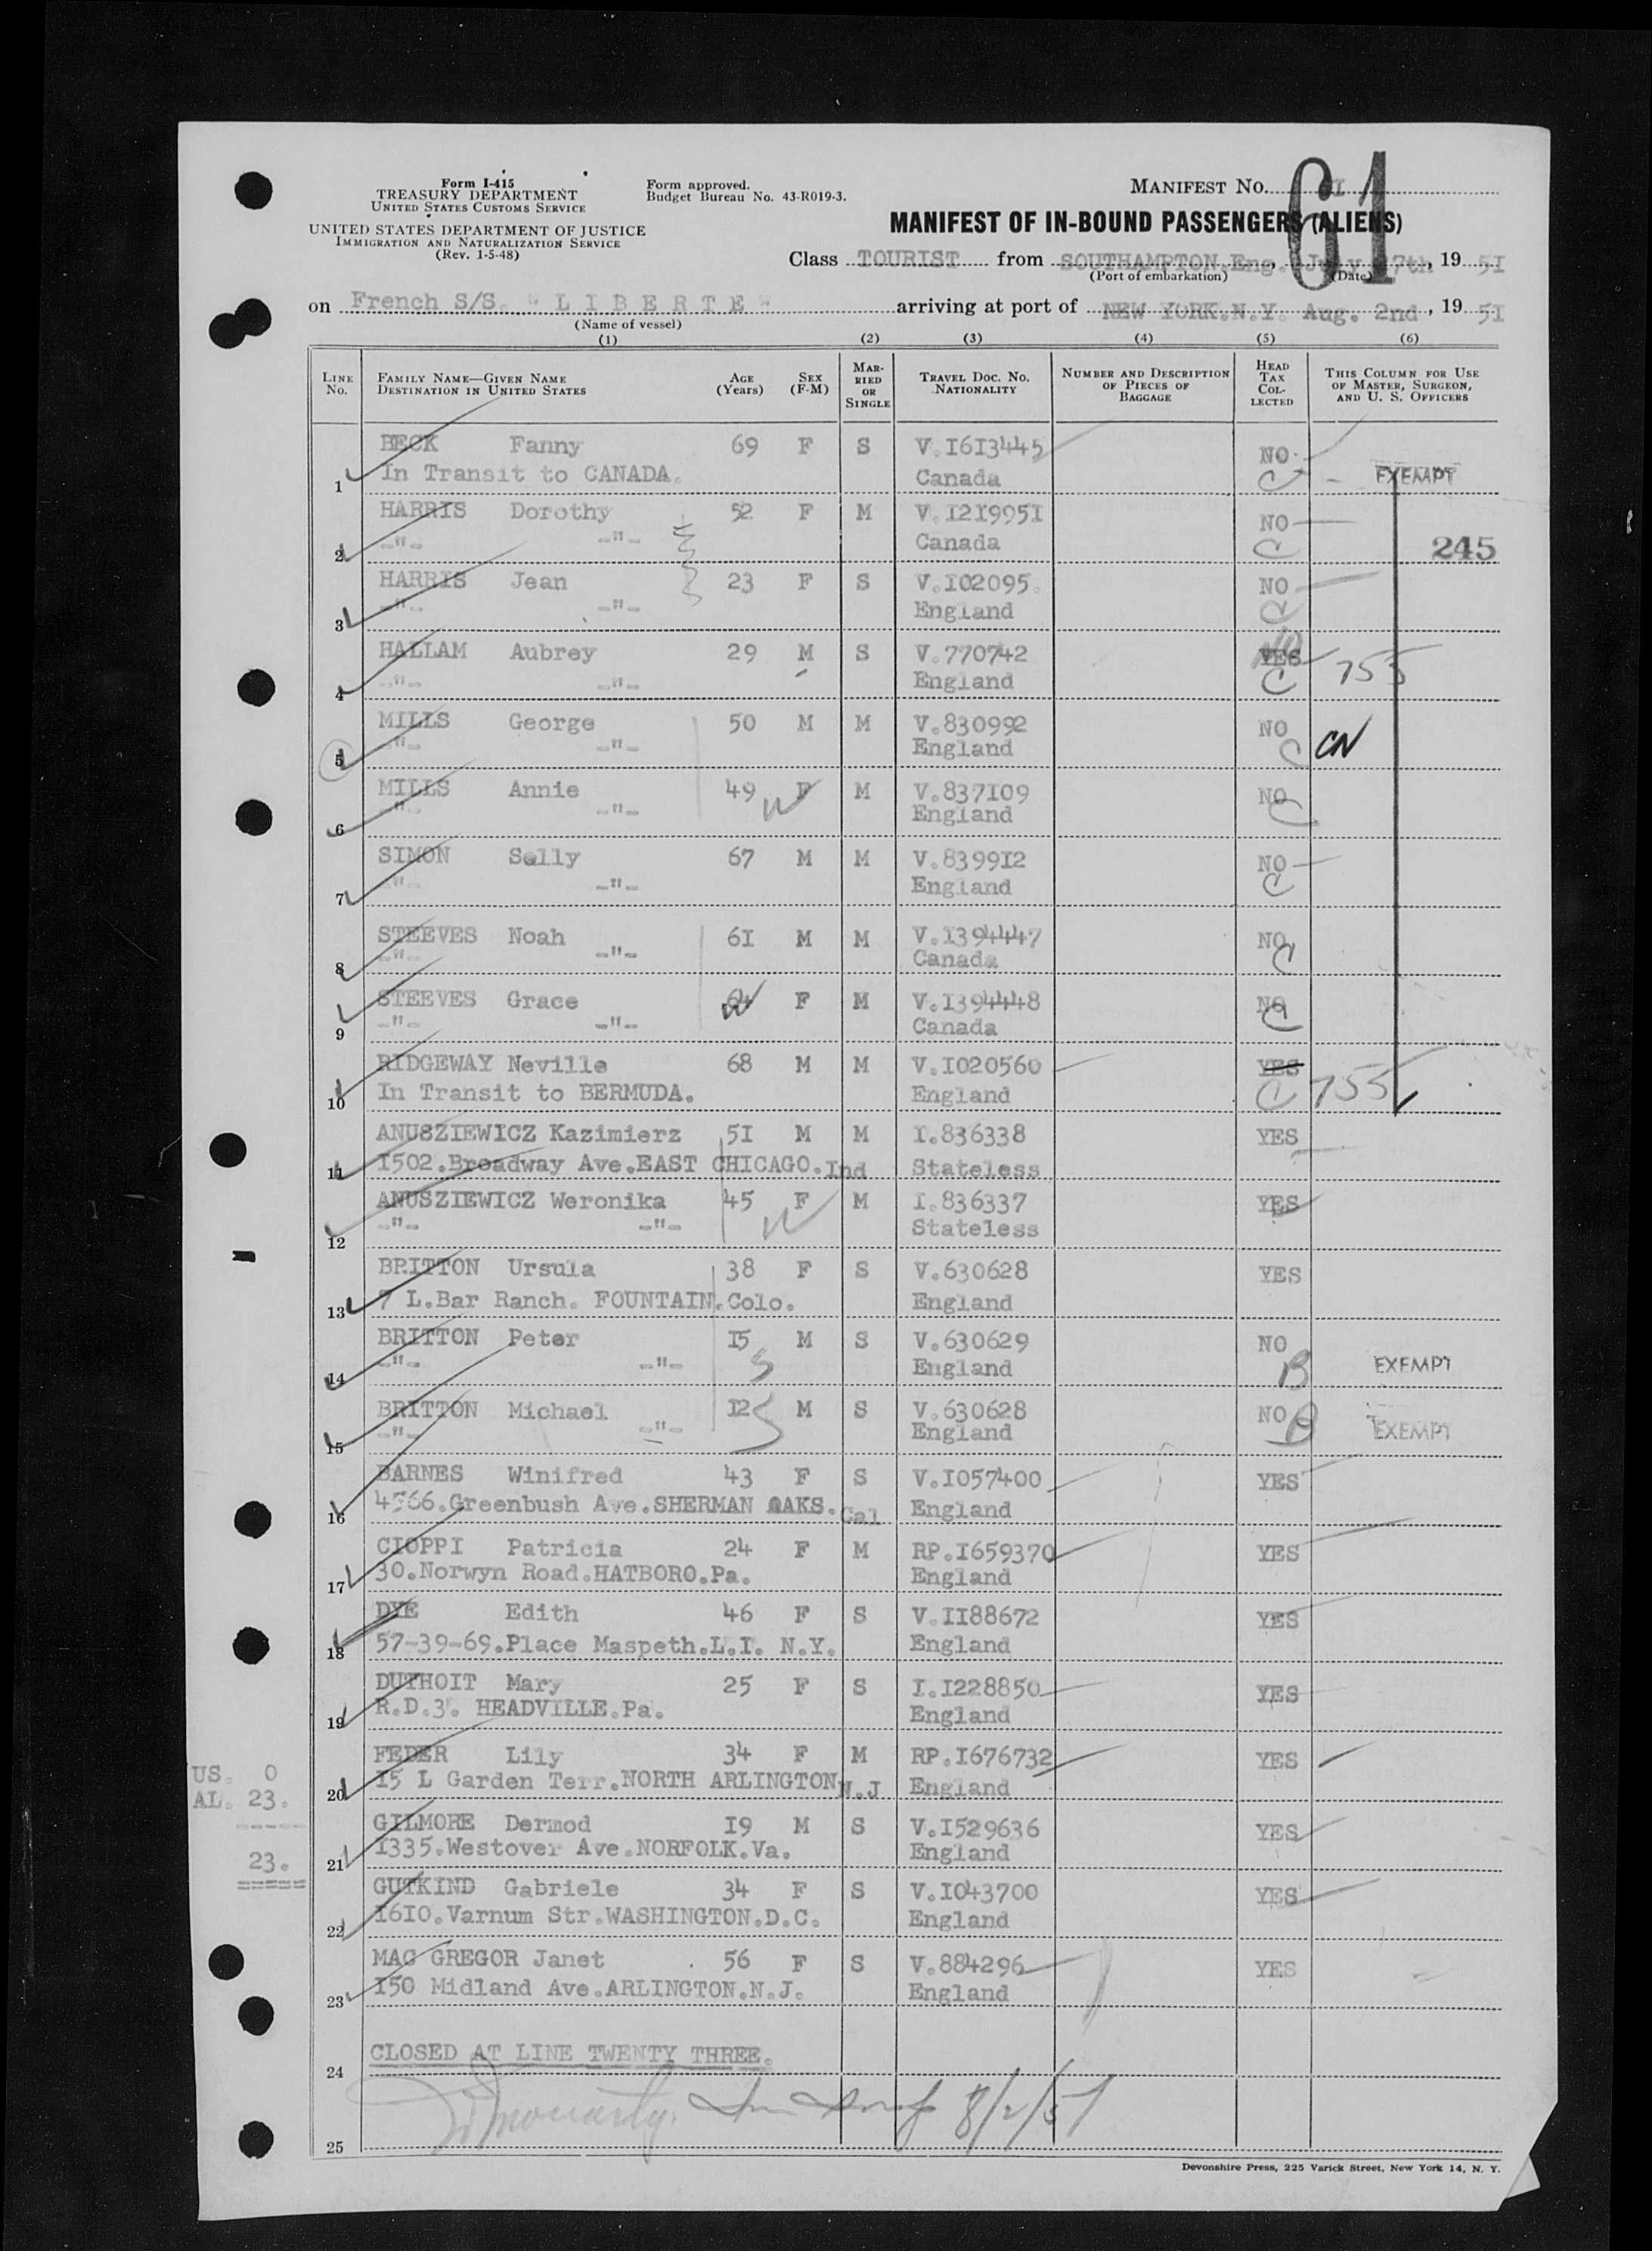 Form I-415
TREASURY DEPARTMENT
UNITED STATES CUSTOMS SERVICE
UNITED STATES DEPARTMENT OF JUSTICE
IMMIGRATION AND NATURALIZATION SERVICE
(Rev. 1-5-48)
Form approved.
Budget Bureau No. 43-R019-3.
MANIFEST NO. 61
MANIFEST OF IN-BOUND PASSENGERS (ALIENS)
Class TOURIST from SOUTHAMPTON.Eng., 7th, 19 51
(Port of embarkation) (Date)
on French S/S. "LIBERTE" arriving at port of NEW YORK.N.Y. Aug. 2nd, 19 51
(Name of vessel)
(1) (2) (3) (4) (5) (6)
LINE NO. FAMILY NAME—GIVEN NAME DESTINATION IN UNITED STATES AGE (Years) SEX (F-M) MARRIED OR SINGLE TRAVEL DOC. NO. NATIONALITY NUMBER AND DESCRIPTION OF PIECES OF BAGGAGE HEAD TAX COLLECTED THIS COLUMN FOR USE OF MASTER, SURGEON, AND U. S. OFFICERS
BECK Fanny 69 F S V.1613445 NO
1 In Transit to CANADA. Canada C EXEMPT
HARRIS Dorothy 52 F M V.1219951 NO
2 -"- -"- Canada C 245
HARRIS Jean 23 F S V.102095. NO
3 -"- -"- England C
HALLAM Aubrey 29 M S V.770742 NO YES 755
4 -"- -"- England C
MILLS George 50 M M V.830992 NO CN
5 -"- -"- England C
MILLS Annie 49 F M V.837109 NO
6 " -"- England C
SIMON Sally 67 M M V.839912 NO
7 -"- -"- England C
STEEVES Noah 61 M M V.1394447 NO
8 -"- -"- Canada C
STEEVES Grace 64 F M V.1394448 NO
9 -"- -"- Canada C
RIDGEWAY Neville 68 M M V.1020560 YES
10 In Transit to BERMUDA. England C 755
ANUSZIEWICZ Kazimierz 51 M M I.836338 YES
11 1502.Broadway Ave.EAST CHICAGO.Ind Stateless
ANUSZIEWICZ Weronika 45 F M I.836337 YES
12 -"- -"- Stateless
BRITTON Ursula 38 F S V.630628 YES
13 7 L.Bar Ranch. FOUNTAIN.Colo. England
BRITTON Peter 15 M S V.630629 NO
14 -"- -"- England B EXEMPT
BRITTON Michael 12 M S V.630628 NO
15 -"- -"- England B EXEMPT
BARNES Winifred 43 F S V.1057400 YES
16 4566.Greenbush Ave.SHERMAN OAKS.Cal England
CIOPPI Patricia 24 F M RP.1659370 YES
17 30.Norwyn Road.HATBORO.Pa. England
DYE Edith 46 F S V.1188672 YES
18 57-39-69.Place Maspeth.L.I. N.Y. England
DUTHOIT Mary 25 F S I.1228850 YES
19 R.D.3. HEADVILLE.Pa. England
FEDER Lily 34 F M RP.1676732 YES
20 15 L Garden Terr.NORTH ARLINGTON N.J England
US. 0
AL. 23.
23.
GILMORE Dermod 19 M S V.1529636 YES
21 1335.Westover Ave.NORFOLK.Va. England
GUTKIND Gabriele 34 F S V.1043700 YES
22 1610.Varnum Str.WASHINGTON.D.C. England
MAC GREGOR Janet 56 F S V.884296 YES
23 150 Midland Ave.ARLINGTON.N.J. England
CLOSED AT LINE TWENTY THREE.
24
8/2/51
25
Devonshire Press, 225 Varick Street, New York 14, N. Y.